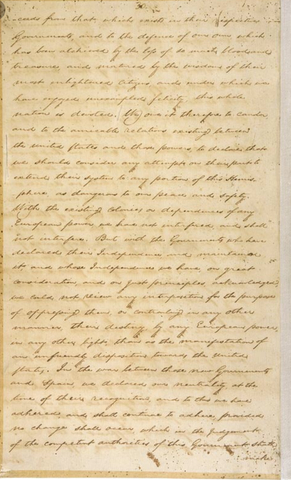 ceeds from that which exists in their respective
Governments, and to the defence of our own which
has been atchieved by the loss of so much blood and
treasure and matured by the wisdom of their
most enlightened citizens and under which we
have enjoyed unexampled felicity this whole
nation is devoted. We owe it therefore to candor
and to the amicable relations existing between
the United States and those powers, to declare that
we should consider any attempt on their part to
extend their system to any portion of this Hemis
phere as dangerous to our peace and safety.
With the existing Colonies or dependencies of any
European power we have not interfered and shall
not interfere. But with the Governments who have
declared their Independence and maintained
it, and whose Independence we have on great
consideration, and on just principles acknowledged
we could not view any interposition for the purpose
of oppressing them, or controling in any other
manner their destiny by any European power
in any other light, than as the manifestation of
an unfriendly disposition towards the United
States. In the war between those new Governments
and Spain we declared our neutrality at the
time of their recognition and to this we have
adhered and shall continue to adhere, provided
no change shall occur which in the judgement
of the competent authorities of this Government shall